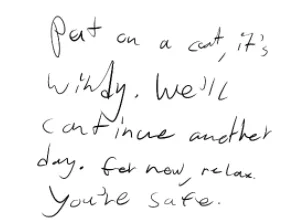 Put on a coat, it's
windy. We'll
continue another
day. For now, relax.
You're safe.